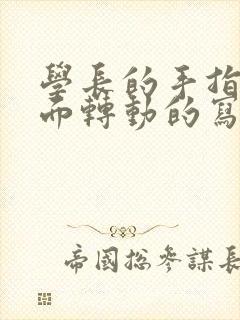 學長的手指
而轉動的寫
帝國總參謀長